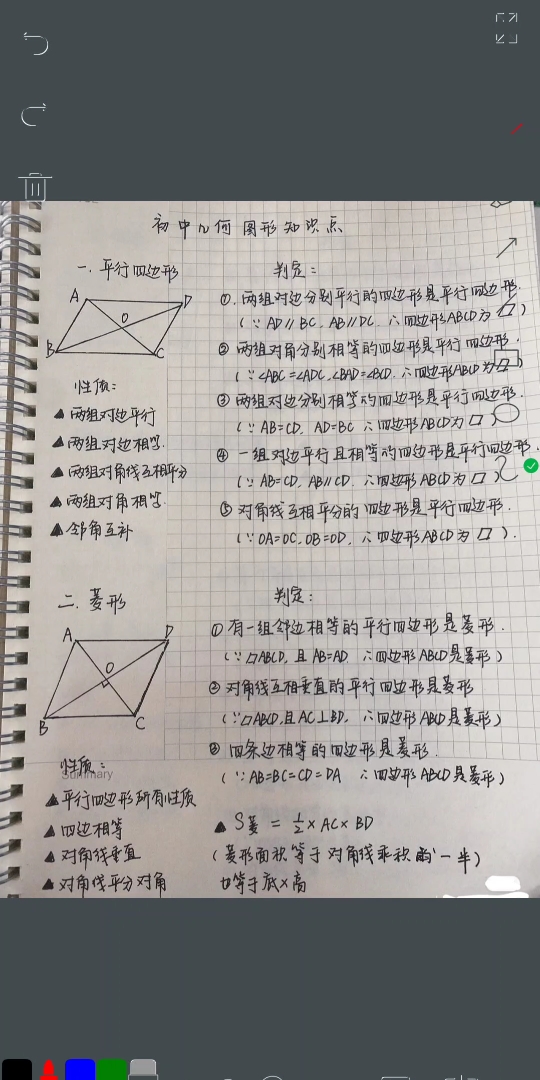 初中几何图形知识点
一. 平行四边形
判定：
A
D
O
B
C
①. 两组对边分别平行的四边形是平行四边形.
(∵ AD∥BC, AB∥DC, ∴四边形ABCD为▱)
② 两组对角分别相等的四边形是平行四边形.
(∵ ∠ABC=∠ADC, ∠BAD=∠BCD, ∴四边形ABCD为▱
③ 两组对边分别相等的四边形是平行四边形.
(∵ AB=CD, AD=BC ∴四边形ABCD为▱)
④ 一组对边平行且相等的四边形是平行四边形.
(∵ AB=CD, AB∥CD. ∴四边形ABCD为▱)
⑤ 对角线互相平分的四边形是平行四边形.
(∵ OA=OC, OB=OD, ∴四边形ABCD为▱).
性质：
▲ 两组对边平行
▲ 两组对边相等.
▲ 两组对角线互相平分
▲ 两组对角相等.
▲ 邻角互补
二. 菱形
判定：
A
D
O
B
C
① 有一组邻边相等的平行四边形是菱形.
(∵▱ABCD, 且AB=AD ∴四边形ABCD是菱形)
② 对角线互相垂直的平行四边形是菱形
(∵▱ABCD, 且AC⊥BD, ∴四边形ABCD是菱形)
③ 四条边相等的四边形是菱形.
(∵AB=BC=CD=DA ∴四边形ABCD是菱形)
性质：
Summary
▲平行四边形所有性质
▲ 四边相等
▲ 对角线垂直
▲ 对角线平分对角
▲ S菱 = 1/2 × AC × BD
(菱形面积等于对角线乘积的一半)
也等于底×高